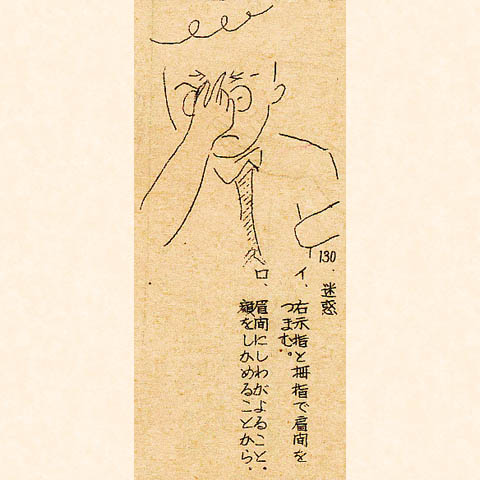 130.
迷惑
イ、右示指と拇指で眉間を
つまむ。
ロ、眉間にしわがよること、
額をしかめることから、